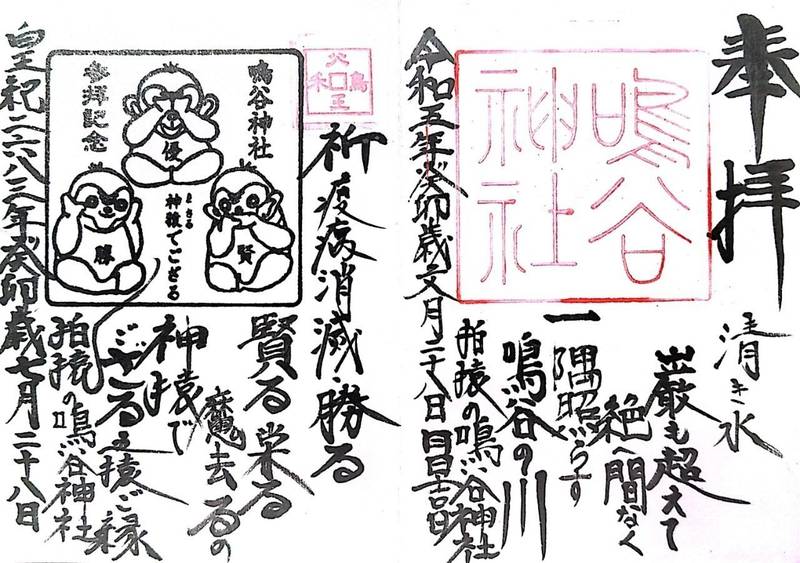 奉拝
清き水
巌も超えて
絶へ間なく
一隅照らす
鳴谷の川
拍猿の鳴谷神社
令和五年癸卯歳文月二十八日
鳴谷
神社
祈疫病消滅勝る
賢る栄る
魔去るの
神猿で
ござる良猿ご縁
拍猿の鳴谷神社
皇紀二六八三年癸卯歳七月二十八日
鳴谷神社
参拝記念
優
勝
賢
まさる
神猿でござる